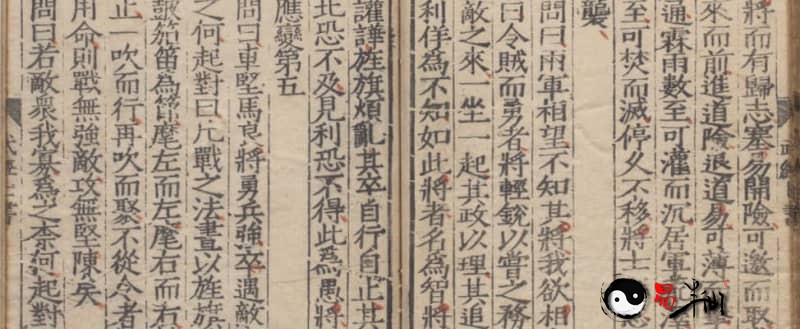 將而有歸志塞易開險可邀而取
來而前進道險退道易可薄
通霖雨數至可灌而沉居軍
至可焚而滅停久不移將士
襲
問曰兩軍相望不知其將我欲相
曰令賤而勇者將輕銳以嘗之務
敵之來一坐一起其政以理其追
利佯為不知如此將者名為智將
讙譁旌旗煩亂其卒自行自止其
北恐不及見利恐不得此為愚將
應變第五
問曰車堅馬良將勇兵強卒遇敵
之何起對曰凡戰之法晝以旌旗
鼓笳笛為節麾左而左麾右而右
止一吹而行再吹而聚不從令者
用命則戰無強敵攻無堅陳矣
問曰若敵衆我寡為之柰何起對